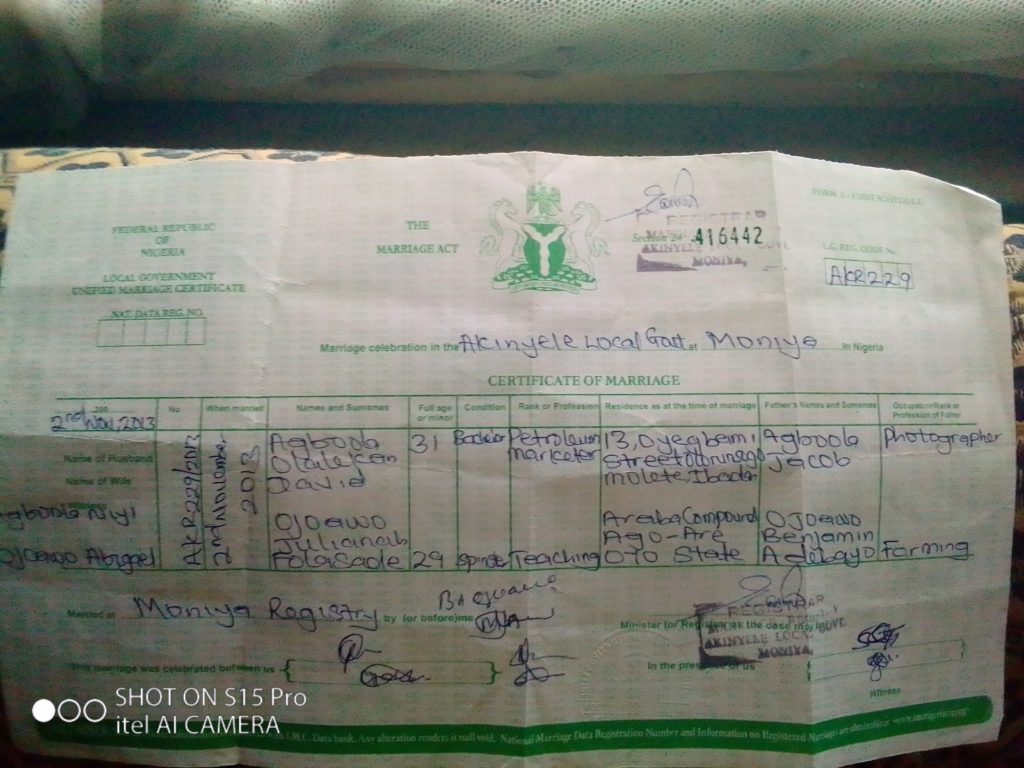 FORM E - FIRST SCHEDULE
FEDERAL REPUBLIC
OF
NIGERIA
LOCAL GOVERNMENT
UNIFIED MARRIAGE CERTIFICATE
NAT. DATA REG. NO.
THE
MARRIAGE ACT
REGISTRAR
Section 24 416442
AKINYELE
MONIYA,
L.G. REG. CODE No.
AKR229
Marriage celebration in the Akinyele Local Govt at Moniya In Nigeria
CERTIFICATE OF MARRIAGE
2nd Nov, 2013
No
When married
Names and Surnames
Full age or minor
Condition
Rank or Profession
Residence as at the time of marriage
Father's Names and Surnames
Occupation/Rank or Profession of Father
Name of Husband
AKR229/2013
2nd November 2013
Agboola
Olalekan
David
31
Bachelor
Petroleum
marketer
13, Oyegbami
Street
Molete, Ibadan
Agboola
Jacob
Photographer
Name of Wife
Agboola Niyi
Ojoawo Abigael
Ojoawo
Julianah
Folasade
29
Spinster
Teaching
Araba Compound
Ago-Are
Oyo State
Ojoawo
Benjamin
Adebayo
Farming
Married at Moniya Registry by (or before) me
Minister (or Registrar) as the case may be
REGISTRAR
AKINYELE LOCAL GOVT.
MONIYA,
This marriage was celebrated between us
In the presence of us
Witness
Data bank. Any alteration renders it null void. National Marriage Data Registration Number and Information on Registered Marriages are obtainable
SHOT ON S15 Pro
itel AI CAMERA